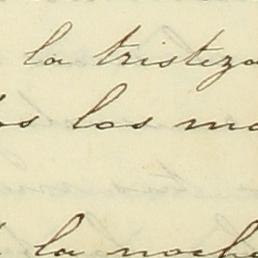 la tristeza
los ma
la noche